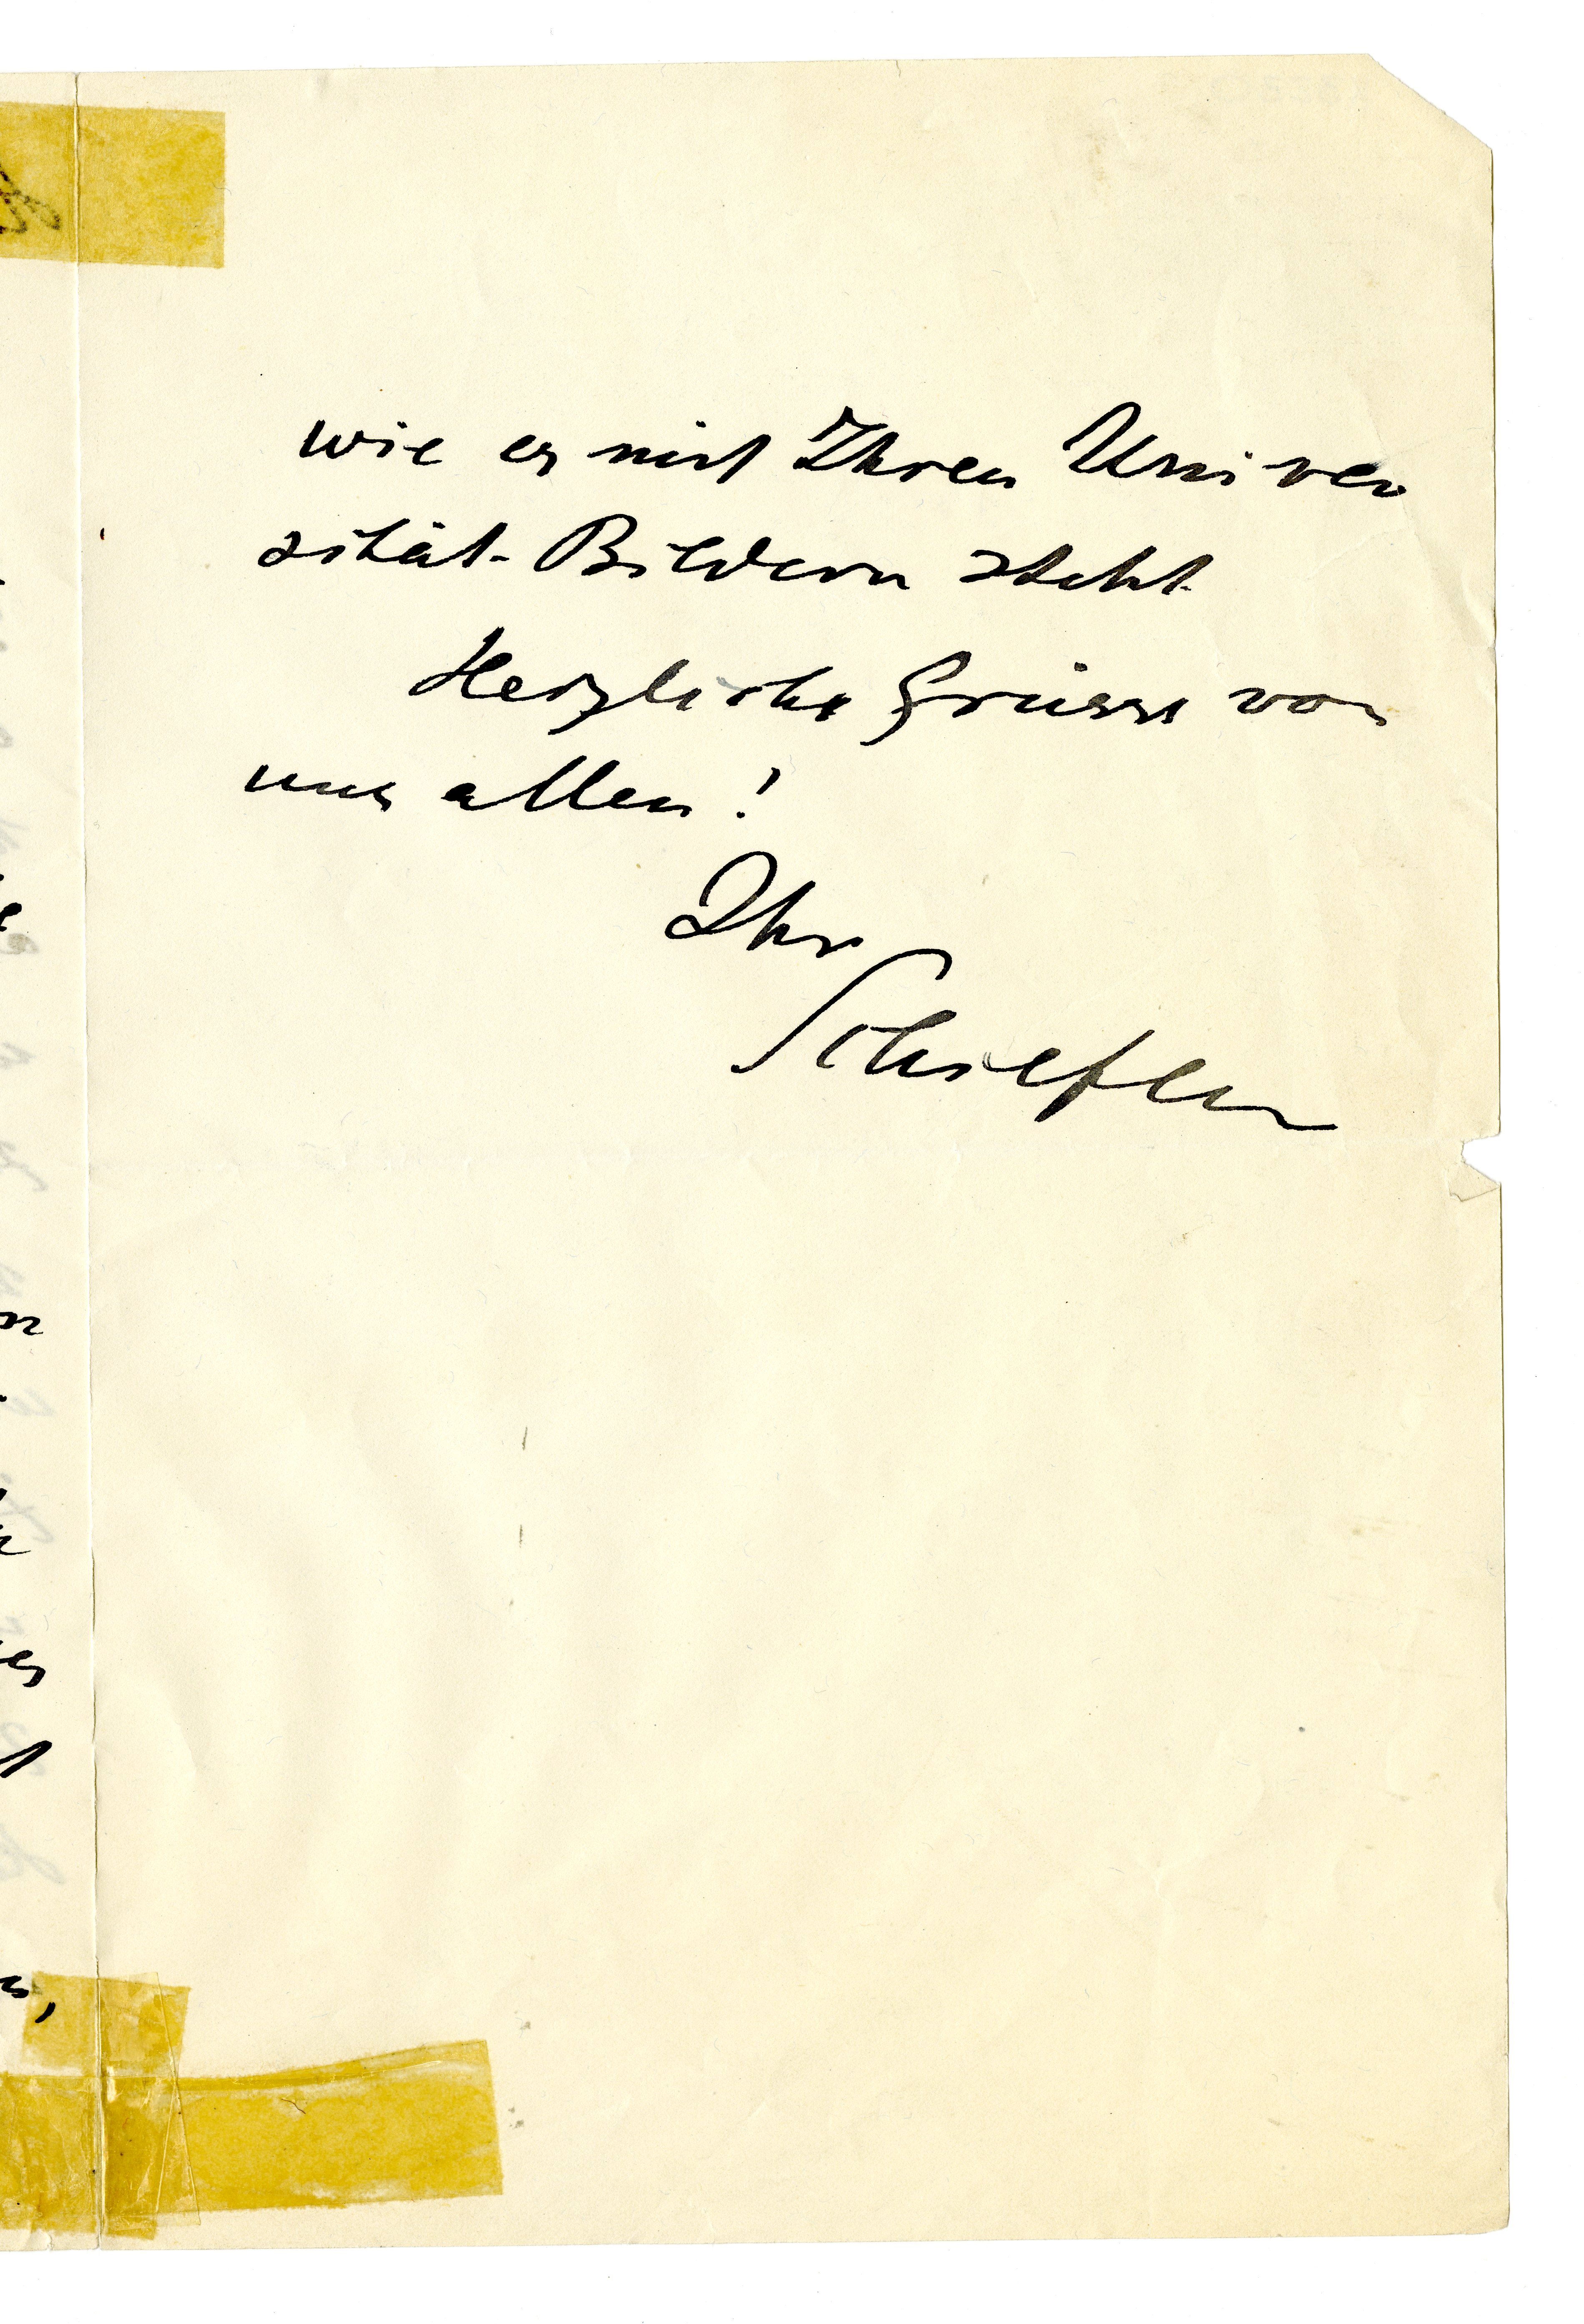 wie es mit Ihren Univer
sität-Bildern steht.
Herzliche Grüsse von
uns allen!
Ihr
Schiefler